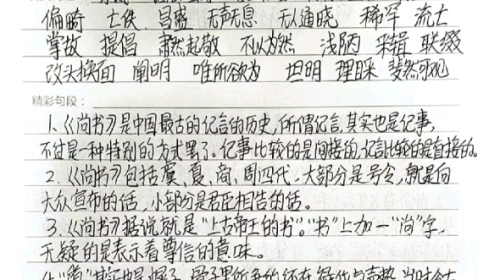 偏畸 亡佚 昌盛 无声无息 无人通晓 稀罕 流亡
掌故 提倡 肃然起敬 不以为然 浅陋 采辑 联缀
改头换面 阐明 唯所欲为 坦明 理睬
精彩句段：
1、《尚书》是中国最古的记言的历史，所谓记言，其实也是记事，
不过是一种特别的方式罢了。记事比较的是间接的，记言比较的是直接的。
2、《尚书》包括虞、夏、商、周四代，大部分是号令，就是向
大众宣布的话，小部分是君臣相告的话。
3、《尚书》据说就是“上古帝王的书”。“书”上加一“尚”字，
无疑的是表示着尊信的意味。